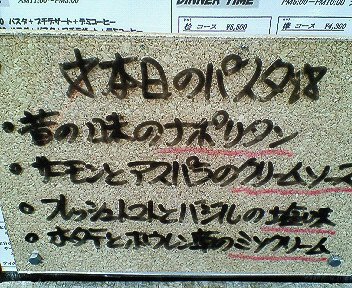 AM11:00～PM3:00
パスタ+プチデザート+デミコーヒー
DINNER TIME
PM6:00～PM10:00
コース ¥6,500
コース ¥4,300
本日のパスタ
・昔の味のナポリタン
・サーモンとアスパラのクリームソース
・フレッシュトマトとバジルの塩味
・ホタテとホウレン草のミソクリーム